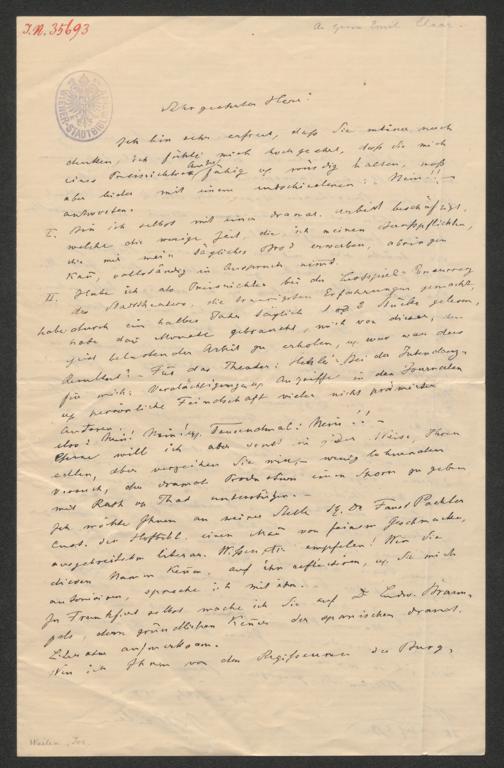 I.N. 35693
An Herrn Emil Claar
WIENER STADTBIBL
Sehr geehrter Herr!
Ich bin sehr erfreut, daß Sie meiner noch
denken, ich fühle mich hochgeehrt, daß Sie mich
eines Preisrichters fähig u würdig halten, muß
aber leider mit einem entschiedenen: Nein!! –
antworten.
I. Bin ich selbst mit einer dramat. Arbeit beschäftigt,
welche die wenige Zeit, die ich meinen Berufspflichten,
die mir mein tägliches Brod erwerben, abringen
kann, vollständig in Anspruch nimt.
II. Habe ich als Preisrichter bei der Lustspiel-
des Stadttheaters, die traurigsten Erfahrungen gemacht,
habe durch ein halbes Jahr täglich 1 o 2 Stücke gelesen,
habe dan Monate gebraucht, mich von dieser, den
Geist Arbeit zu erholen, u was war das
Resultat? – Für das Theater:
für mich: Verdächtigungen u Angriffe in den Journalen
u persönliche Feindschaft vieler nicht prämirter
Autoren.
also: Nein! Nein! u. Tausendmal: Nein!! –
Gerne will ich aber sonst in jeder Weise, Ihren
edlen, aber verzeihen Sie mir, – wenig lohnenden
Versuch, der dramat. Produktion einen Sporn zu geben
mit Rath u That unterstützen. –
Ich möchte Ihnen an meiner Stelle Dr. Faust Pachler
Cust. der Hofbibl. einen Man von feinem Geschmacke,
ausgebreitetem literar. Wissen etc empfelen! Wen Sie
diesen Namen kenen, auf ihn reflectiren, u. Sie mich
autorisiren, spreche ich mit ihm.
In Frankfurt selbst mache ich Sie auf Dr Ludw. Braun-
fels, dem gründlichen Kener der spanischen dramat.
Literatur aufmerksam.
Wen ich Ihnen von den Regisseuren der Burg,
Weilen, Jos.